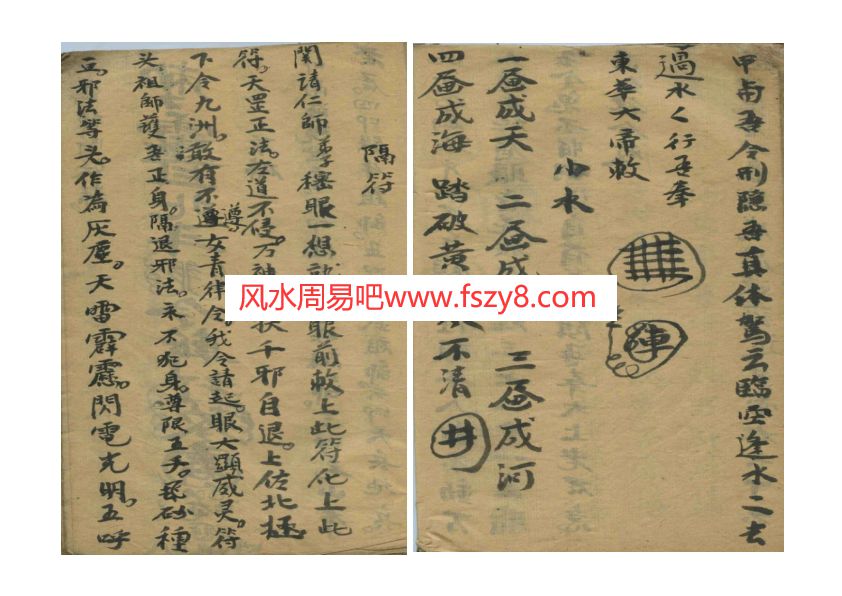 甲寅吾令刑隱吾真体駕云臨空逢水二去
過水く行吾奉
東華大帝敕
陣
小水
一昼成天 二昼成 三昼成河
四昼成海 踏破黄 不清 井
隔符
関請仁師 弟子 眼一想 眼前敕上此符化上此
符。天罡正法。左道不侵。万神 扶千邪自退。上佐北極。
下令九洲。敢有不遵導女青律令。我今請起。眼大顕威灵。符
头。祖師護吾正身。隔退邪法。永不犯身。尊限五 。 砂種
豆。邪法等头。作為灰塵。天雷霹靂。閃電光明。五呼
风水周易吧www.fszy8.com